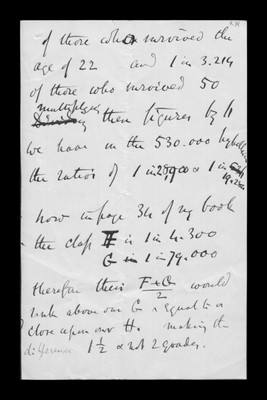 of those who survived the
age of 22 and 1 in 3.214
of those who survived 50
multiplying
these figures by 4
we have in the 530.000
the ratios of 1 in 1 in
now in page 34 of my book
the class F is 1 in 4.300
G in 1 in 79.000
therefore their F+G/2 would
rank above our G & equal to or
close upon our H. making the
difference 1½ & not 2 grades.